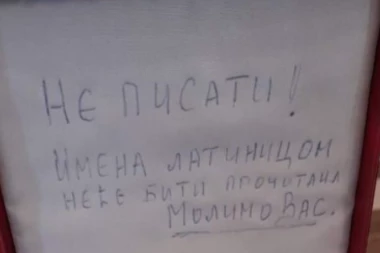 НЕ ПИСАТИ!
ИМЕНА ЛАТИНИЦОМ
НЕЋЕ БИТИ ПРОЧИТАНА
МОЛИМО ВАС.